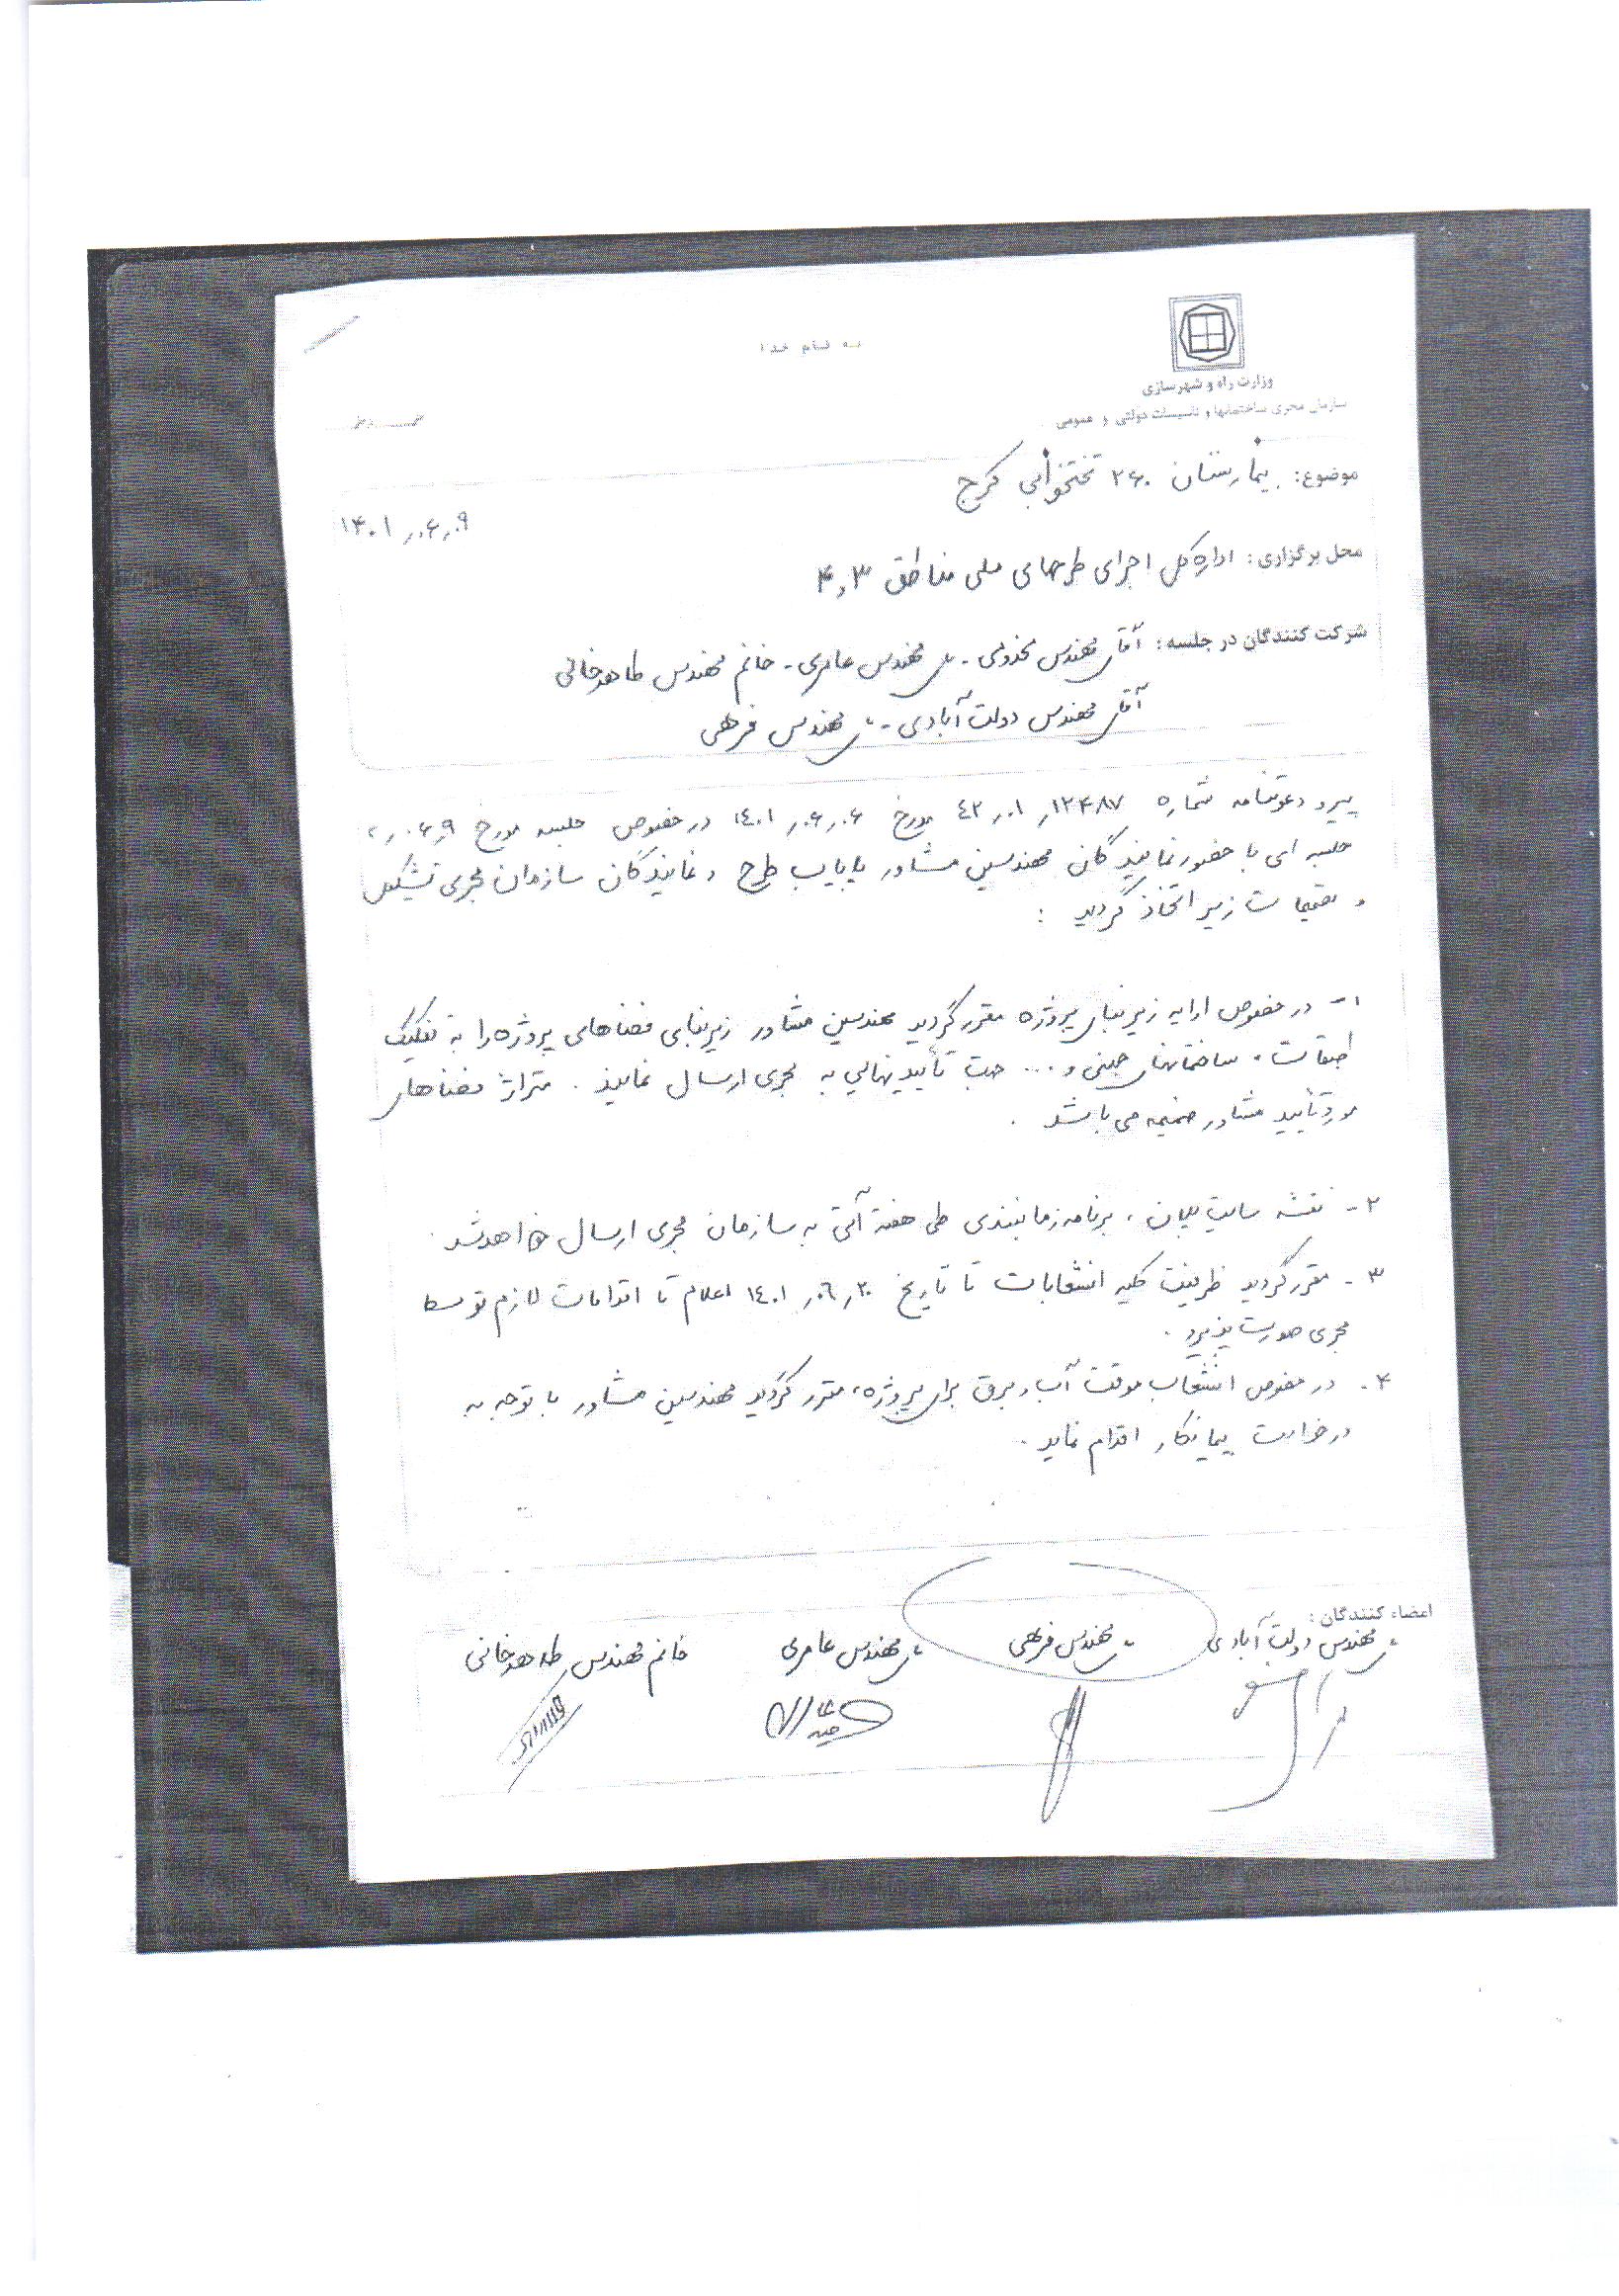 به نام خدا
وزارت راه و شهرسازی
سازمان مجری ساختمانها و تاسیسات دولتی و عمومی
موضوع: بیمارستان ۲۶۰ تختخوابی کرج
۱۴۰۱,۰۶,۰۹
محل برگزاری: اداره کل اجرای طرحهای ملی مناطق ۳ و ۴
شرکت کنندگان در جلسه: آقای مهندس مخدومی - مهندس عامری - خانم مهندس طاهرخانی
آقای مهندس دولت آبادی - مهندس فرهی
پیرو دعوتنامه شماره ۴۲,۰۱,۱۲۴۸۷ مورخ ۱۴۰۱,۰۶,۰۶ در خصوص جلسه مورخ ۰۶,۹
جلسه ای با حضور نمایندگان مهندسین مشاور پایاب طرح و نمایندگان سازمان مجری تشکیل
و تصمیمات زیر اتخاذ گردید :
۱- در خصوص ارایه زیربنای پروژه مقرر گردید مهندسین مشاور زیربنای فضاهای پروژه را به تفکیک
طبقات، ساختمانهای جنبی و .... جهت تأیید نهایی به مجری ارسال نمایند. متراژ فضاهای
مورد تأیید مشاور ضمیمه می باشد .
۲- نقشه سایت پلان ، برنامه زمانبندی طی هفته آتی به سازمان مجری ارسال خواهد شد.
۳- مقرر گردید ظرفیت کلیه انشعابات تا تاریخ ۱۴۰۱,۰۶,۲۰ اعلام تا اقدامات لازم توسط
مجری صورت پذیرد .
۴- در خصوص انشعاب موقت آب و برق برای پروژه، مقرر گردید مهندسین مشاور با توجه به
درخواست پیمانکار اقدام نماید .
امضاء کنندگان :
مهندس دولت آبادی مهندس فرهی مهندس عامری خانم مهندس طاهرخانی